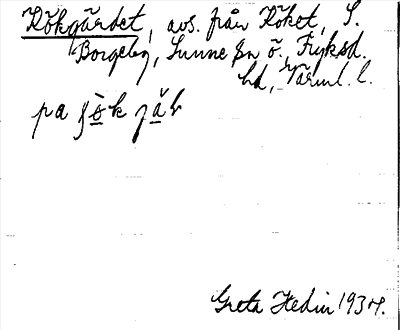 Kökgärdet, avs. från Köket, S.
Borgeby, Sunne sn ö., Fryksd.
hd, Värml. l.
pa
Greta Hedin 1934.